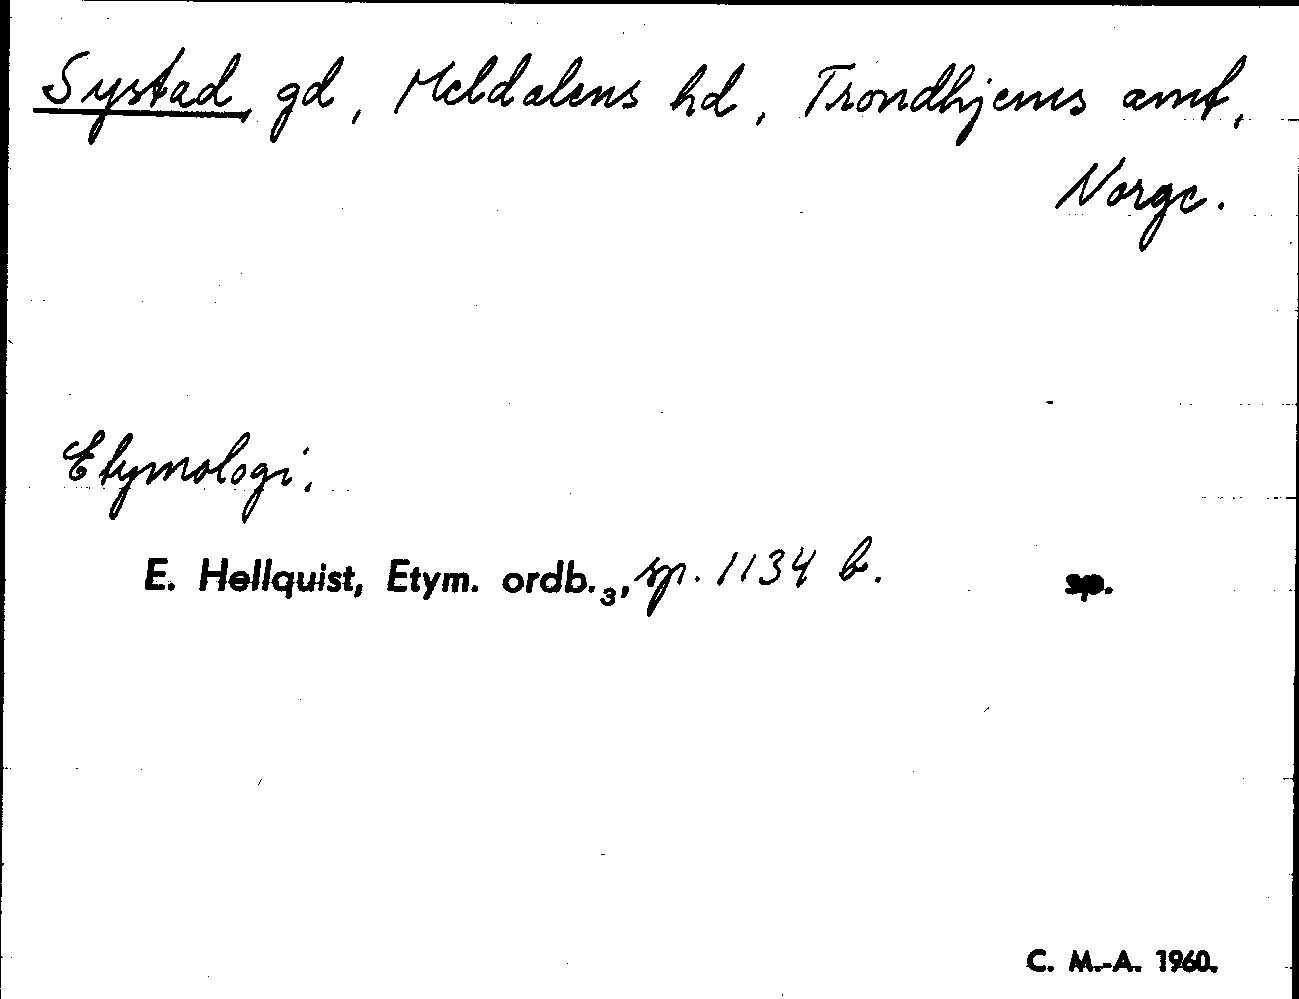 Systad, gd, Meldalens hd, Trondhjems amt,
Norge.
Etymologi.
E. Hellquist, Etym. ordb.₃, sp. 1134 b. sp.
C. M.-A. 1960.